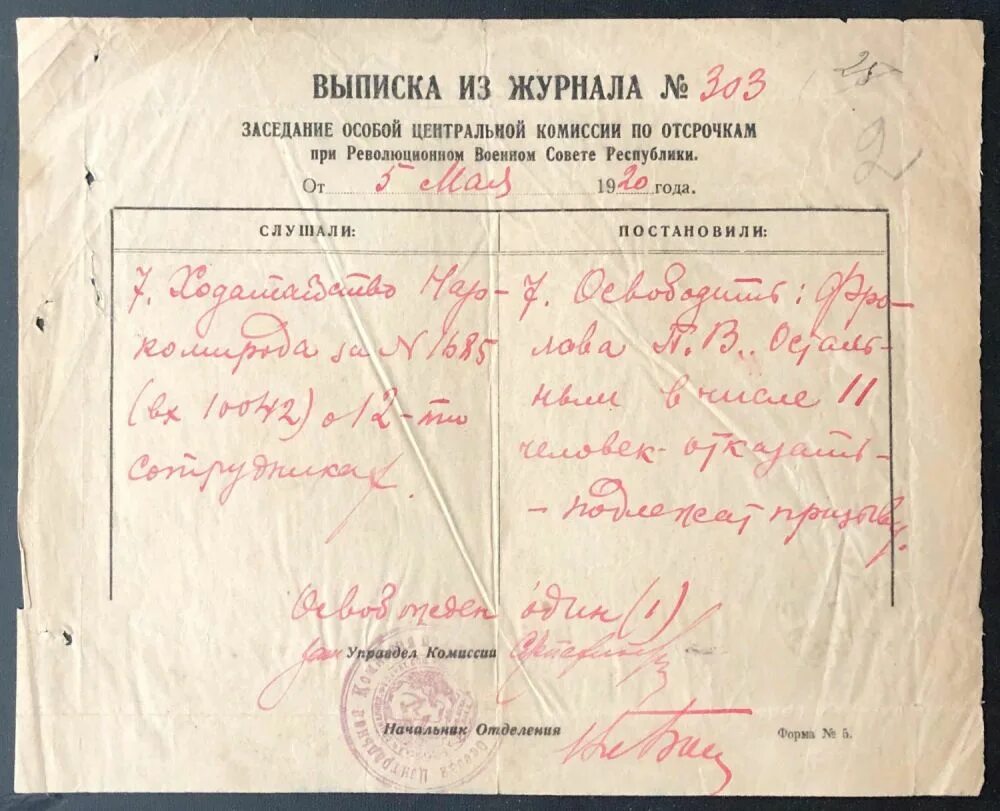 ВЫПИСКА ИЗ ЖУРНАЛА № 303
25
2
ЗАСЕДАНИЕ ОСОБОЙ ЦЕНТРАЛЬНОЙ КОМИССИИ ПО ОТСРОЧКАМ
при Революционном Военном Совете Республики.
От 5 Мая 1920 года.
СЛУШАЛИ:
7. Ходатайство Нар-
компрода за N 1685
(вх 10042) о 12-ти
сотрудниках.
ПОСТАНОВИЛИ:
7. Освободить: Фро-
лова П.В.. Осталь-
ным в числе 11
человек - отказать -
- подлежат призыву.
Освобожден один (1)
Управдел Комиссии
Начальник Отделения
Форма № 5.
Особая Центральная